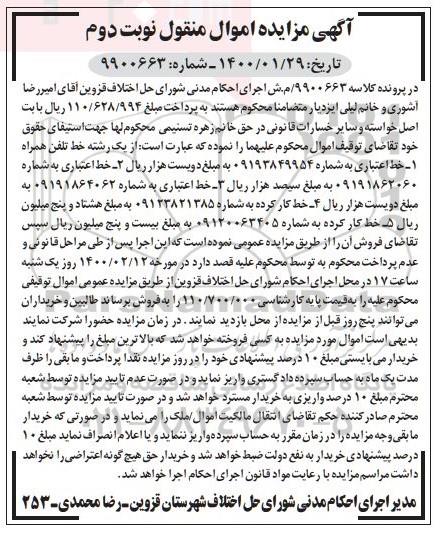 آگهی مزایده اموال منقول نوبت دوم
تاریخ: ۱۴۰۰/۰۱/۲۹ ـ شماره: ۹۹۰۰۶۶۳
در پرونده کلاسه ۹۹۰۰۶۶۳/م.ش اجرای احکام مدنی شورای حل اختلاف قزوین آقای امیررضا
آشوری و خانم لیلی ایزدیار متضامنا محکوم هستند به پرداخت مبلغ ۱۱۰/۶۲۸/۹۹۴ ریال با بت
اصل خواسته و سایر خسارات قانونی در حق خانم زهره تسنیمی محکوم لها جهت استیفای حقوق
خود تقاضای توقیف اموال محکوم علیهما را نموده که عبارت است؛ از یک رشته خط تلفن همراه
۱ـ خط اعتباری به شماره ۰۹۱۹۳۸۴۹۹۵۴ به مبلغ دویست هزار ریال ۲ـ خط اعتباری به شماره
۰۹۱۹۱۸۶۲۰۶۰ به مبلغ سیصد هزار ریال ۳ـ خط اعتباری به شماره ۰۹۱۹۱۸۶۴۰۶۲ به
مبلغ دویست هزار ریال ۴ـ خط کار کرده به شماره ۰۹۱۲۳۸۲۱۳۸۵ به مبلغ هشتاد و پنج میلیون
ریال ۵ـ خط کار کرده به شماره ۰۹۱۲۰۰۶۳۴۰۵ به مبلغ بیست و پنج میلیون ریال سپس
تقاضای فروش آن را از طریق مزایده عمومی نموده است که این اجرا پس از طی مراحل قانونی و
عدم پرداخت محکوم به توسط محکوم علیه قصد دارد در مورخه ۱۴۰۰/۰۲/۱۲ روز یک شنبه
ساعت ۱۷ در محل اجرای احکام شورای حل اختلاف قزوین از طریق مزایده عمومی اموال توقیفی
محکوم علیه را به قیمت پایه کارشناسی ۱۱۰/۷۰۰/۰۰۰ را به فروش برساند طالبین و خریداران
می توانند پنج روز قبل از مزایده از محل بازدید نمایند . در زمان مزایده حضورا شرکت نمایند
بدیهی است اموال مورد مزایده به کسی فروخته خواهد شد که بالاترین مبلغ را پیشنهاد کند و
خریدار می بایستی مبلغ ۱۰ درصد پیشنهادی خود را در روز مزایده نقدا پرداخت و ما بقی را ظرف
مدت یک ماه به حساب سپرده دادگستری واریز نماید و در صورت عدم تایید مزایده توسط شعبه
محترم مبلغ ۱۰ درصد واریزی به خریدار مسترد خواهد شد و در صورت تایید مزایده توسط شعبه
محترم صادر کننده حکم تقاضای انتقال مالکیت اموال/ملک را می نماید و در صورتی که خریدار
ما بقی وجه مزایده را در زمان مقرر به حساب سپرده واریز ننماید و یا اعلام انصراف نماید مبلغ ۱۰
درصد پیشنهادی خریدار به نفع دولت ضبط خواهد شد و خریدار حق هیچ گونه اعتراضی را نخواهد
داشت مراسم مزایده با رعایت مواد قانون اجرای احکام اجرا خواهد شد.
مدیر اجرای احکام مدنی شورای حل اختلاف شهرستان قزوین ـ رضا محمدی ـ ۲۵۳